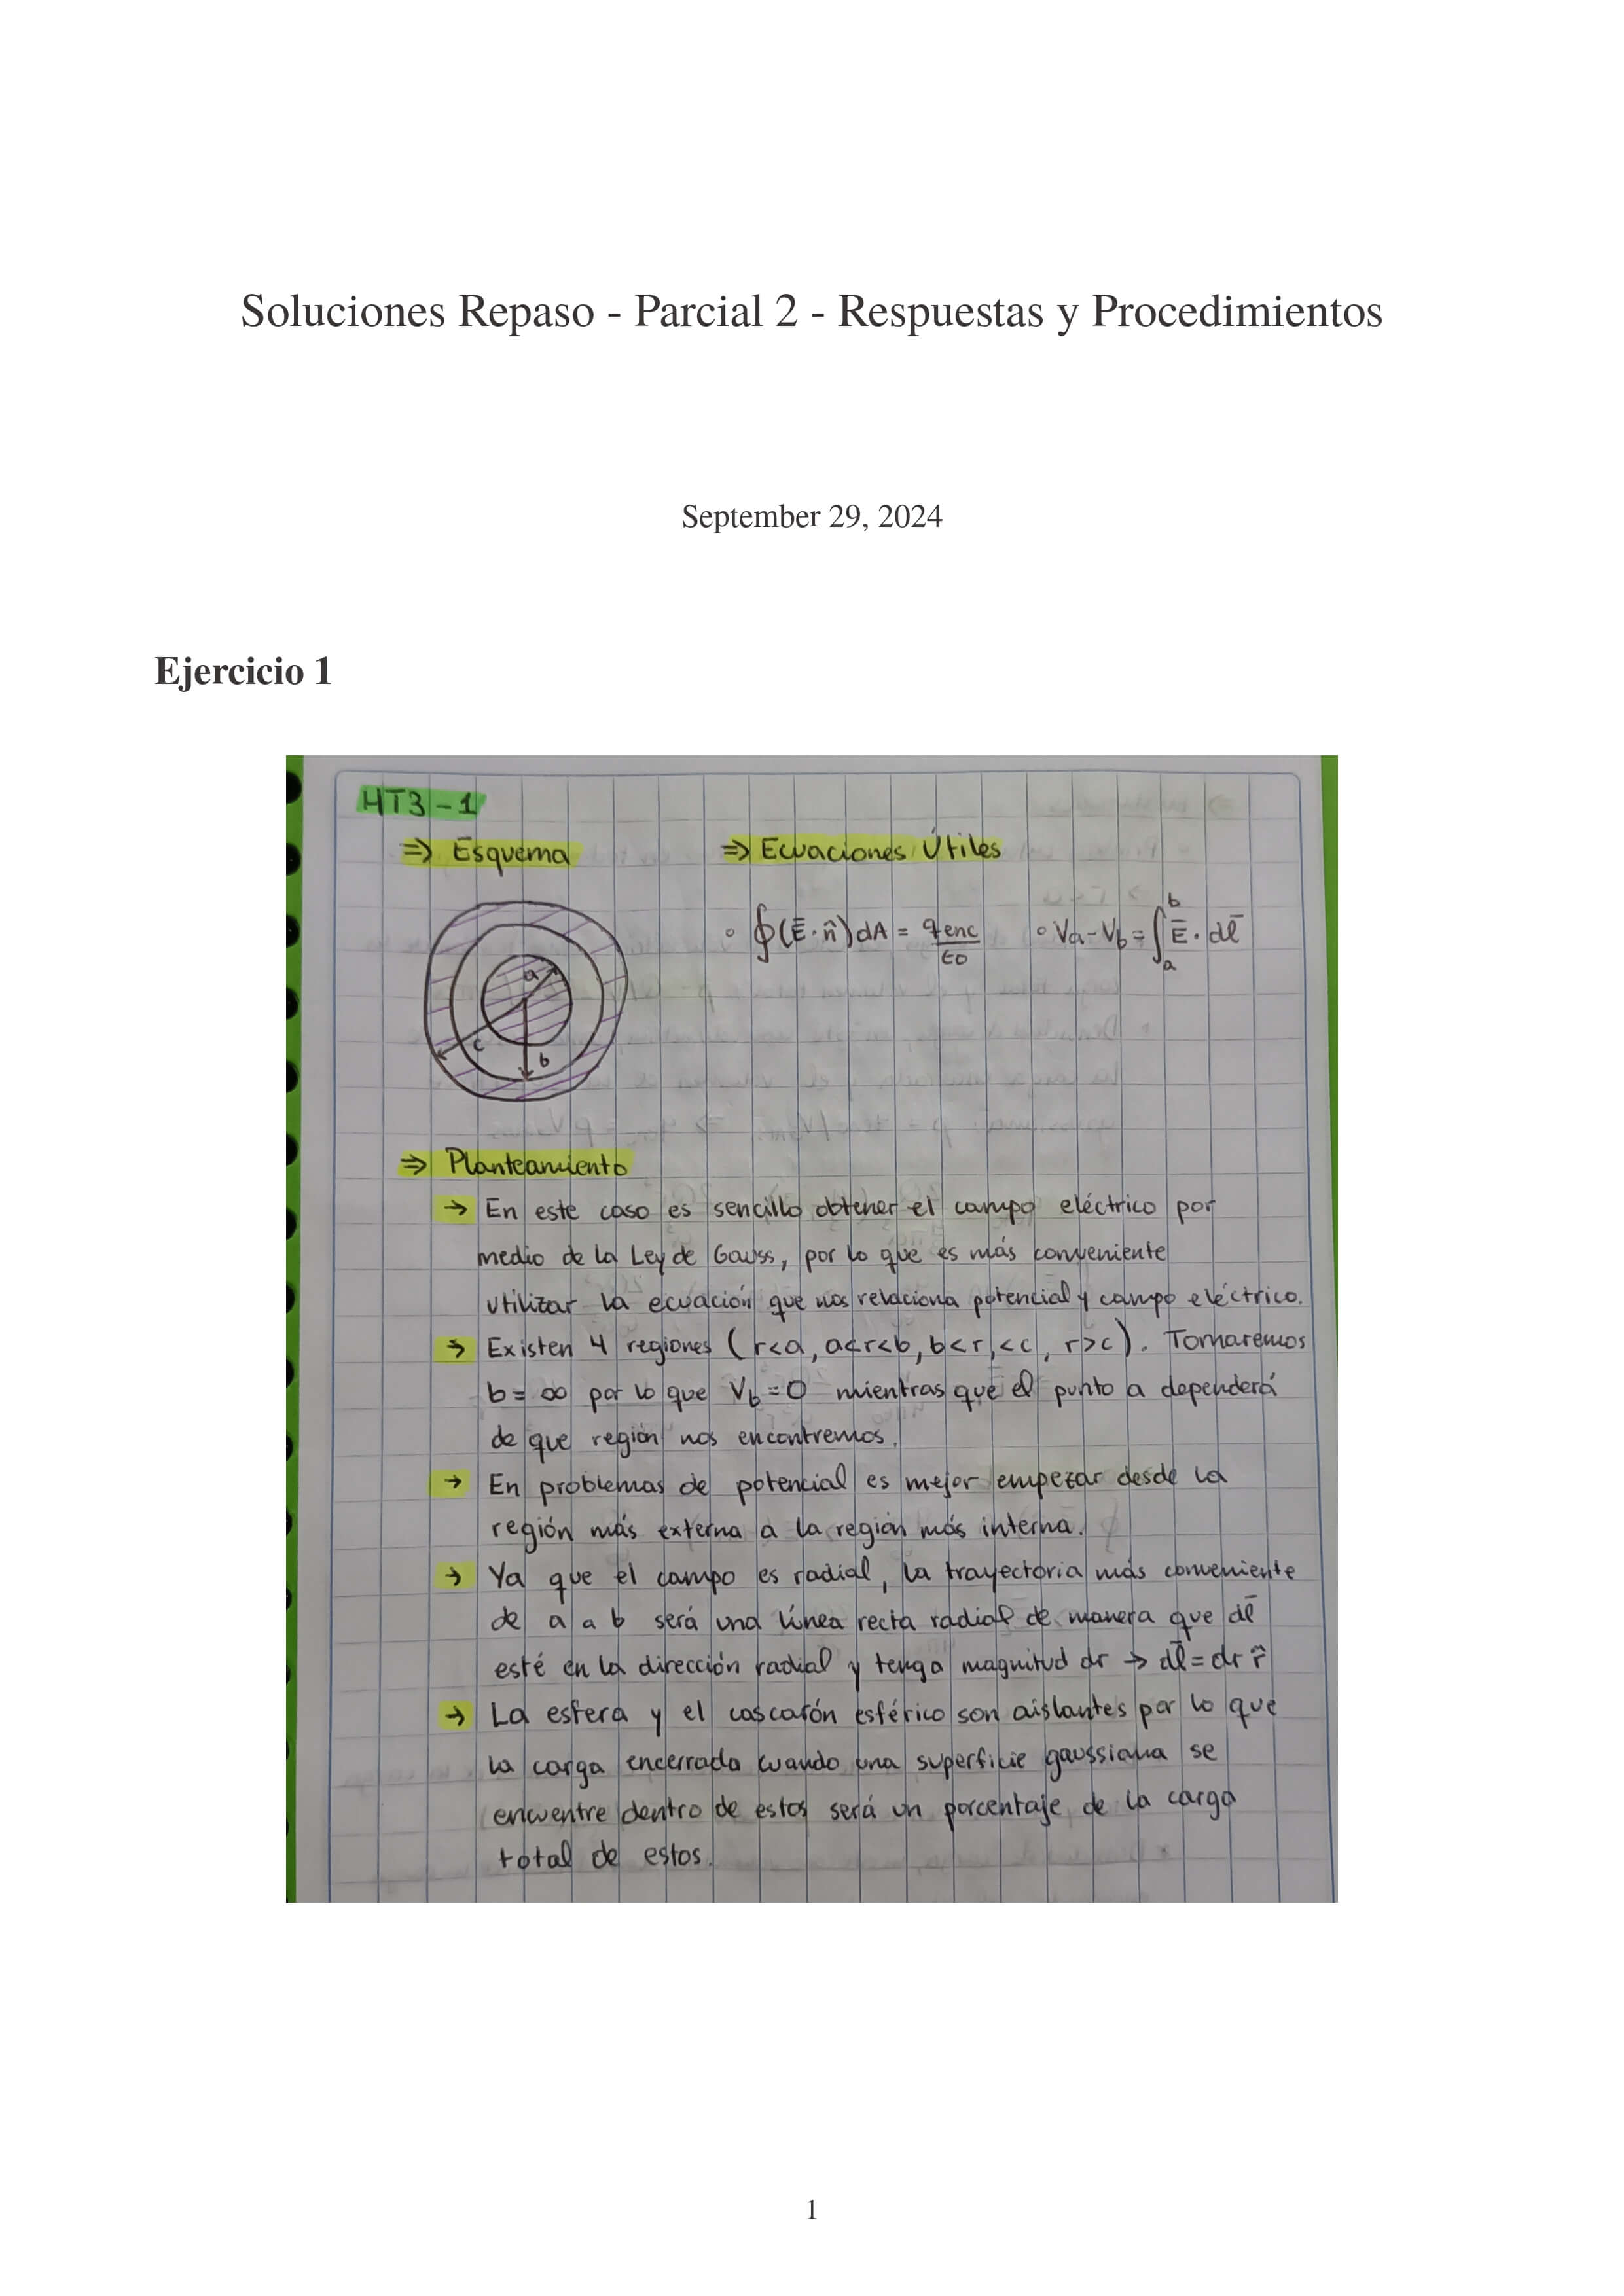 Soluciones Repaso - Parcial 2 - Respuestas y Procedimientos
September 29, 2024
Ejercicio 1
HT3-1
⇒ Esquema
⇒ Ecuaciones Útiles
a
c
b
◦ ∮(Ē·n̂)dA = qenc/ε0
◦ Va-Vb = ∫ₐᵇ Ē·dl̄
⇒ Planteamiento
→ En este caso es sencillo obtener el campo eléctrico por
medio de la Ley de Gauss, por lo que es más conveniente
utilizar la ecuación que nos relaciona potencial y campo eléctrico.
→ Existen 4 regiones (r<a, a<r<b, b<r<c, r>c). Tomaremos
b=∞ por lo que Vb=0 mientras que el punto a dependerá
de que región nos encontremos.
→ En problemas de potencial es mejor empezar desde la
región más externa a la región más interna.
→ Ya que el campo es radial, la trayectoria más conveniente
de a a b será una línea recta radial de manera que dl̄
esté en la dirección radial y tenga magnitud dr → dl̄=dr r̂
→ La esfera y el cascarón esférico son aislantes por lo que
la carga encerrada cuando una superficie gaussiana se
encuentre dentro de estos será un porcentaje de la carga
total de estos.
1